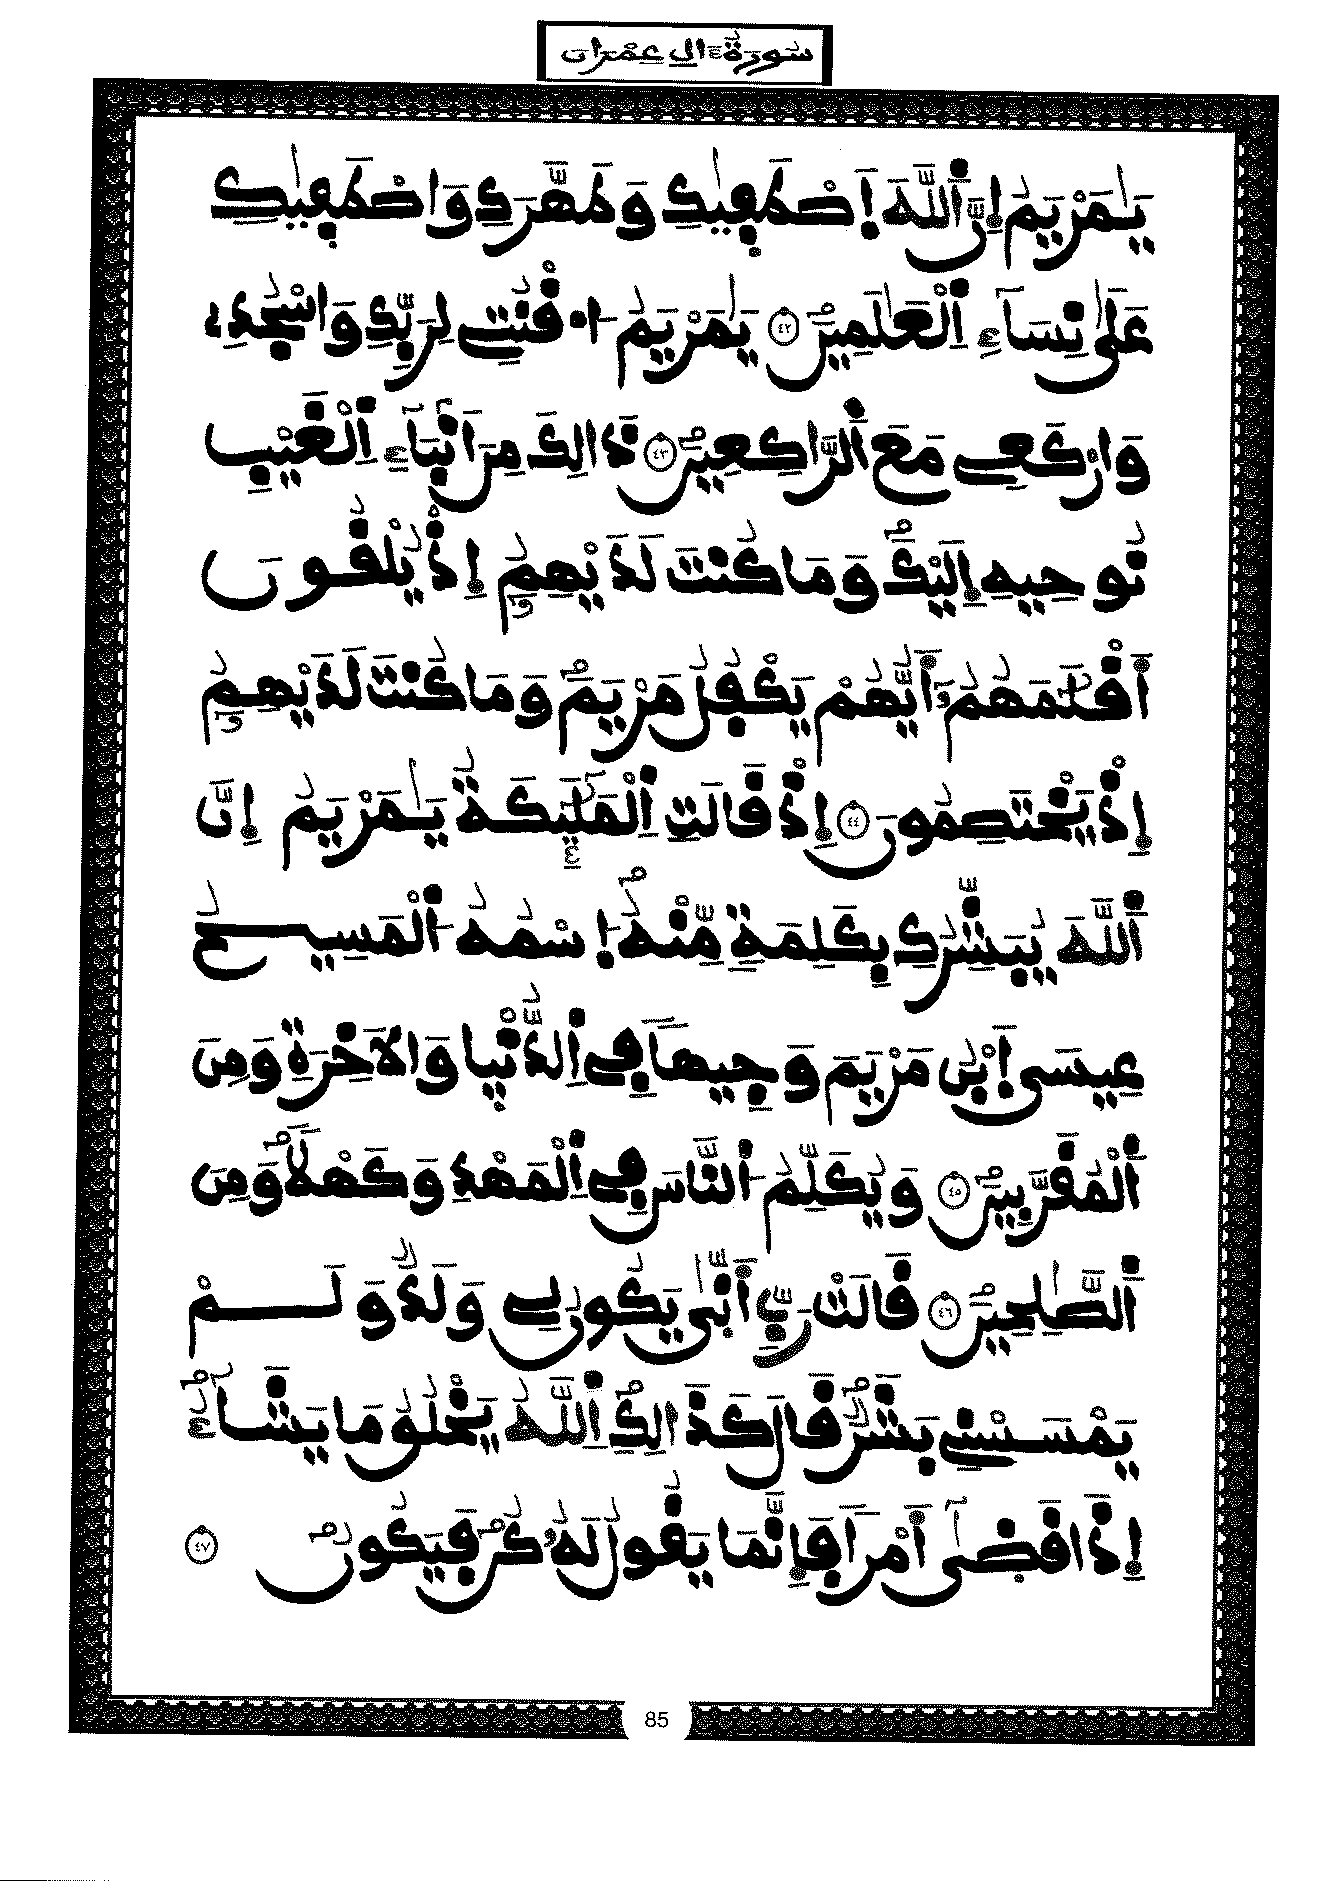 سُورَةُ اٰلِ عِمْرَان
يَٰمَرْيَمُ إِنَّ ٱللَّهَ ٱصْطَفَىٰكِ وَطَهَّرَكِ وَاصْطَفَىٰكِ
عَلَىٰ نِسَآءِ ٱلْعَٰلَمِينَ ٤٢ يَٰمَرْيَمُ ٱقْنُتِے لِرَبِّكِ وَاسْجُدِے
وَارْكَعِے مَعَ ٱلرَّاكِعِينَ ٤٣ ذَالِكَ مِنَ اَنۢبَآءِ ٱلْغَيْبِ
نُوحِيهِ إِلَيْكَ وَمَا كُنتَ لَدَيْهِمُۥ إِذْ يُلْقُونَ
أَقْلَٰمَهُمُۥ أَيُّهُمْ يَكْفُلُ مَرْيَمَ وَمَا كُنتَ لَدَيْهِمُۥ
إِذْ يَخْتَصِمُونَ ٤٤ إِذْ قَالَتِ ٱلْمَلَٰٓئِكَةُ يَٰمَرْيَمُ إِنَّ
ٱللَّهَ يُبَشِّرُكِ بِكَلِمَةٍ مِّنْهُ ٱسْمُهُ ٱلْمَسِيحُ
عِيسَى ٱبْنُ مَرْيَمَ وَجِيهًا فِے ٱلدُّنْيَا وَالْأٓخِرَةِ وَمِنَ
ٱلْمُقَرَّبِينَ ٤٥ وَيُكَلِّمُ ٱلنَّاسَ فِے ٱلْمَهْدِ وَكَهْلًا وَمِنَ
ٱلصَّٰلِحِينَ ٤٦ قَالَتْ رَبِّ أَنَّىٰ يَكُونُ لِے وَلَدٌ وَلَمْ
يَمْسَسْنِے بَشَرٌ قَالَ كَذَالِكِ ٱللَّهُ يَخْلُقُ مَا يَشَآءُ
إِذَا قَضَىٰٓ أَمْرًا فَإِنَّمَا يَقُولُ لَهُۥ كُن فَيَكُونُ ٤٧
85